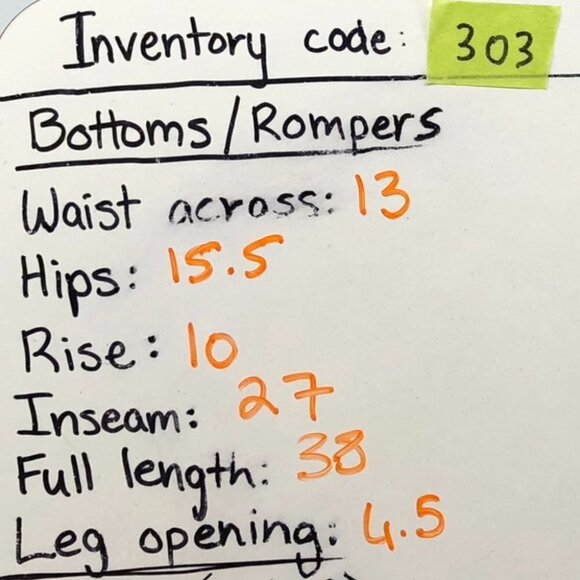 Inventory code: 303
Bottoms/Rompers
Waist across: 13
Hips: 15.5
Rise: 10
Inseam: 27
Full length: 38
Leg opening: 4.5